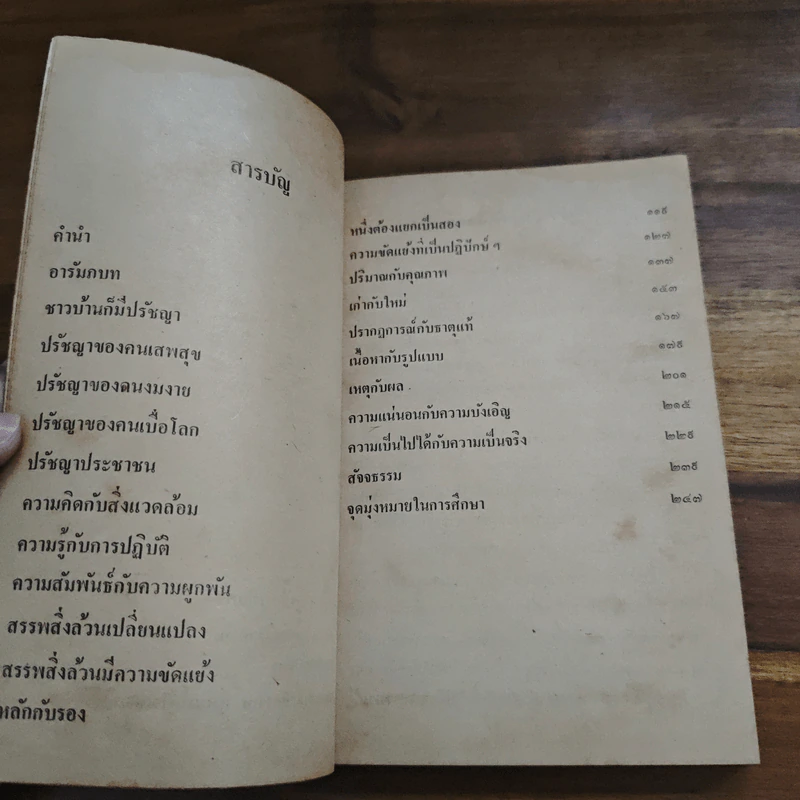 สารบัญ
คำนำ
อารัมภบท
ชาวบ้านก็มีปรัชญา
ปรัชญาของคนเสพสุข
ปรัชญาของคนงมงาย
ปรัชญาของคนเบื่อโลก
ปรัชญาประชาชน
ความคิดกับสิ่งแวดล้อม
ความรู้กับการปฏิบัติ
ความสัมพันธ์กับความผูกพัน
สรรพสิ่งล้วนเปลี่ยนแปลง
สรรพสิ่งล้วนมีความขัดแย้ง
หลักกับรอง
หนึ่งต้องแยกเป็นสอง ๑๑๕
ความขัดแย้งที่เป็นปฏิปักษ์ ฯ ๑๒๗
ปริมาณกับคุณภาพ ๑๓๗
เก่ากับใหม่ ๑๕๓
ปรากฏการณ์กับธาตุแท้ ๑๖๗
เนื้อหากับรูปแบบ ๑๗๕
เหตุกับผล ๒๐๑
ความแน่นอนกับความบังเอิญ ๒๑๕
ความเป็นไปได้กับความเป็นจริง ๒๒๕
สัจธรรม ๒๓๕
จุดมุ่งหมายในการศึกษา ๒๔๗